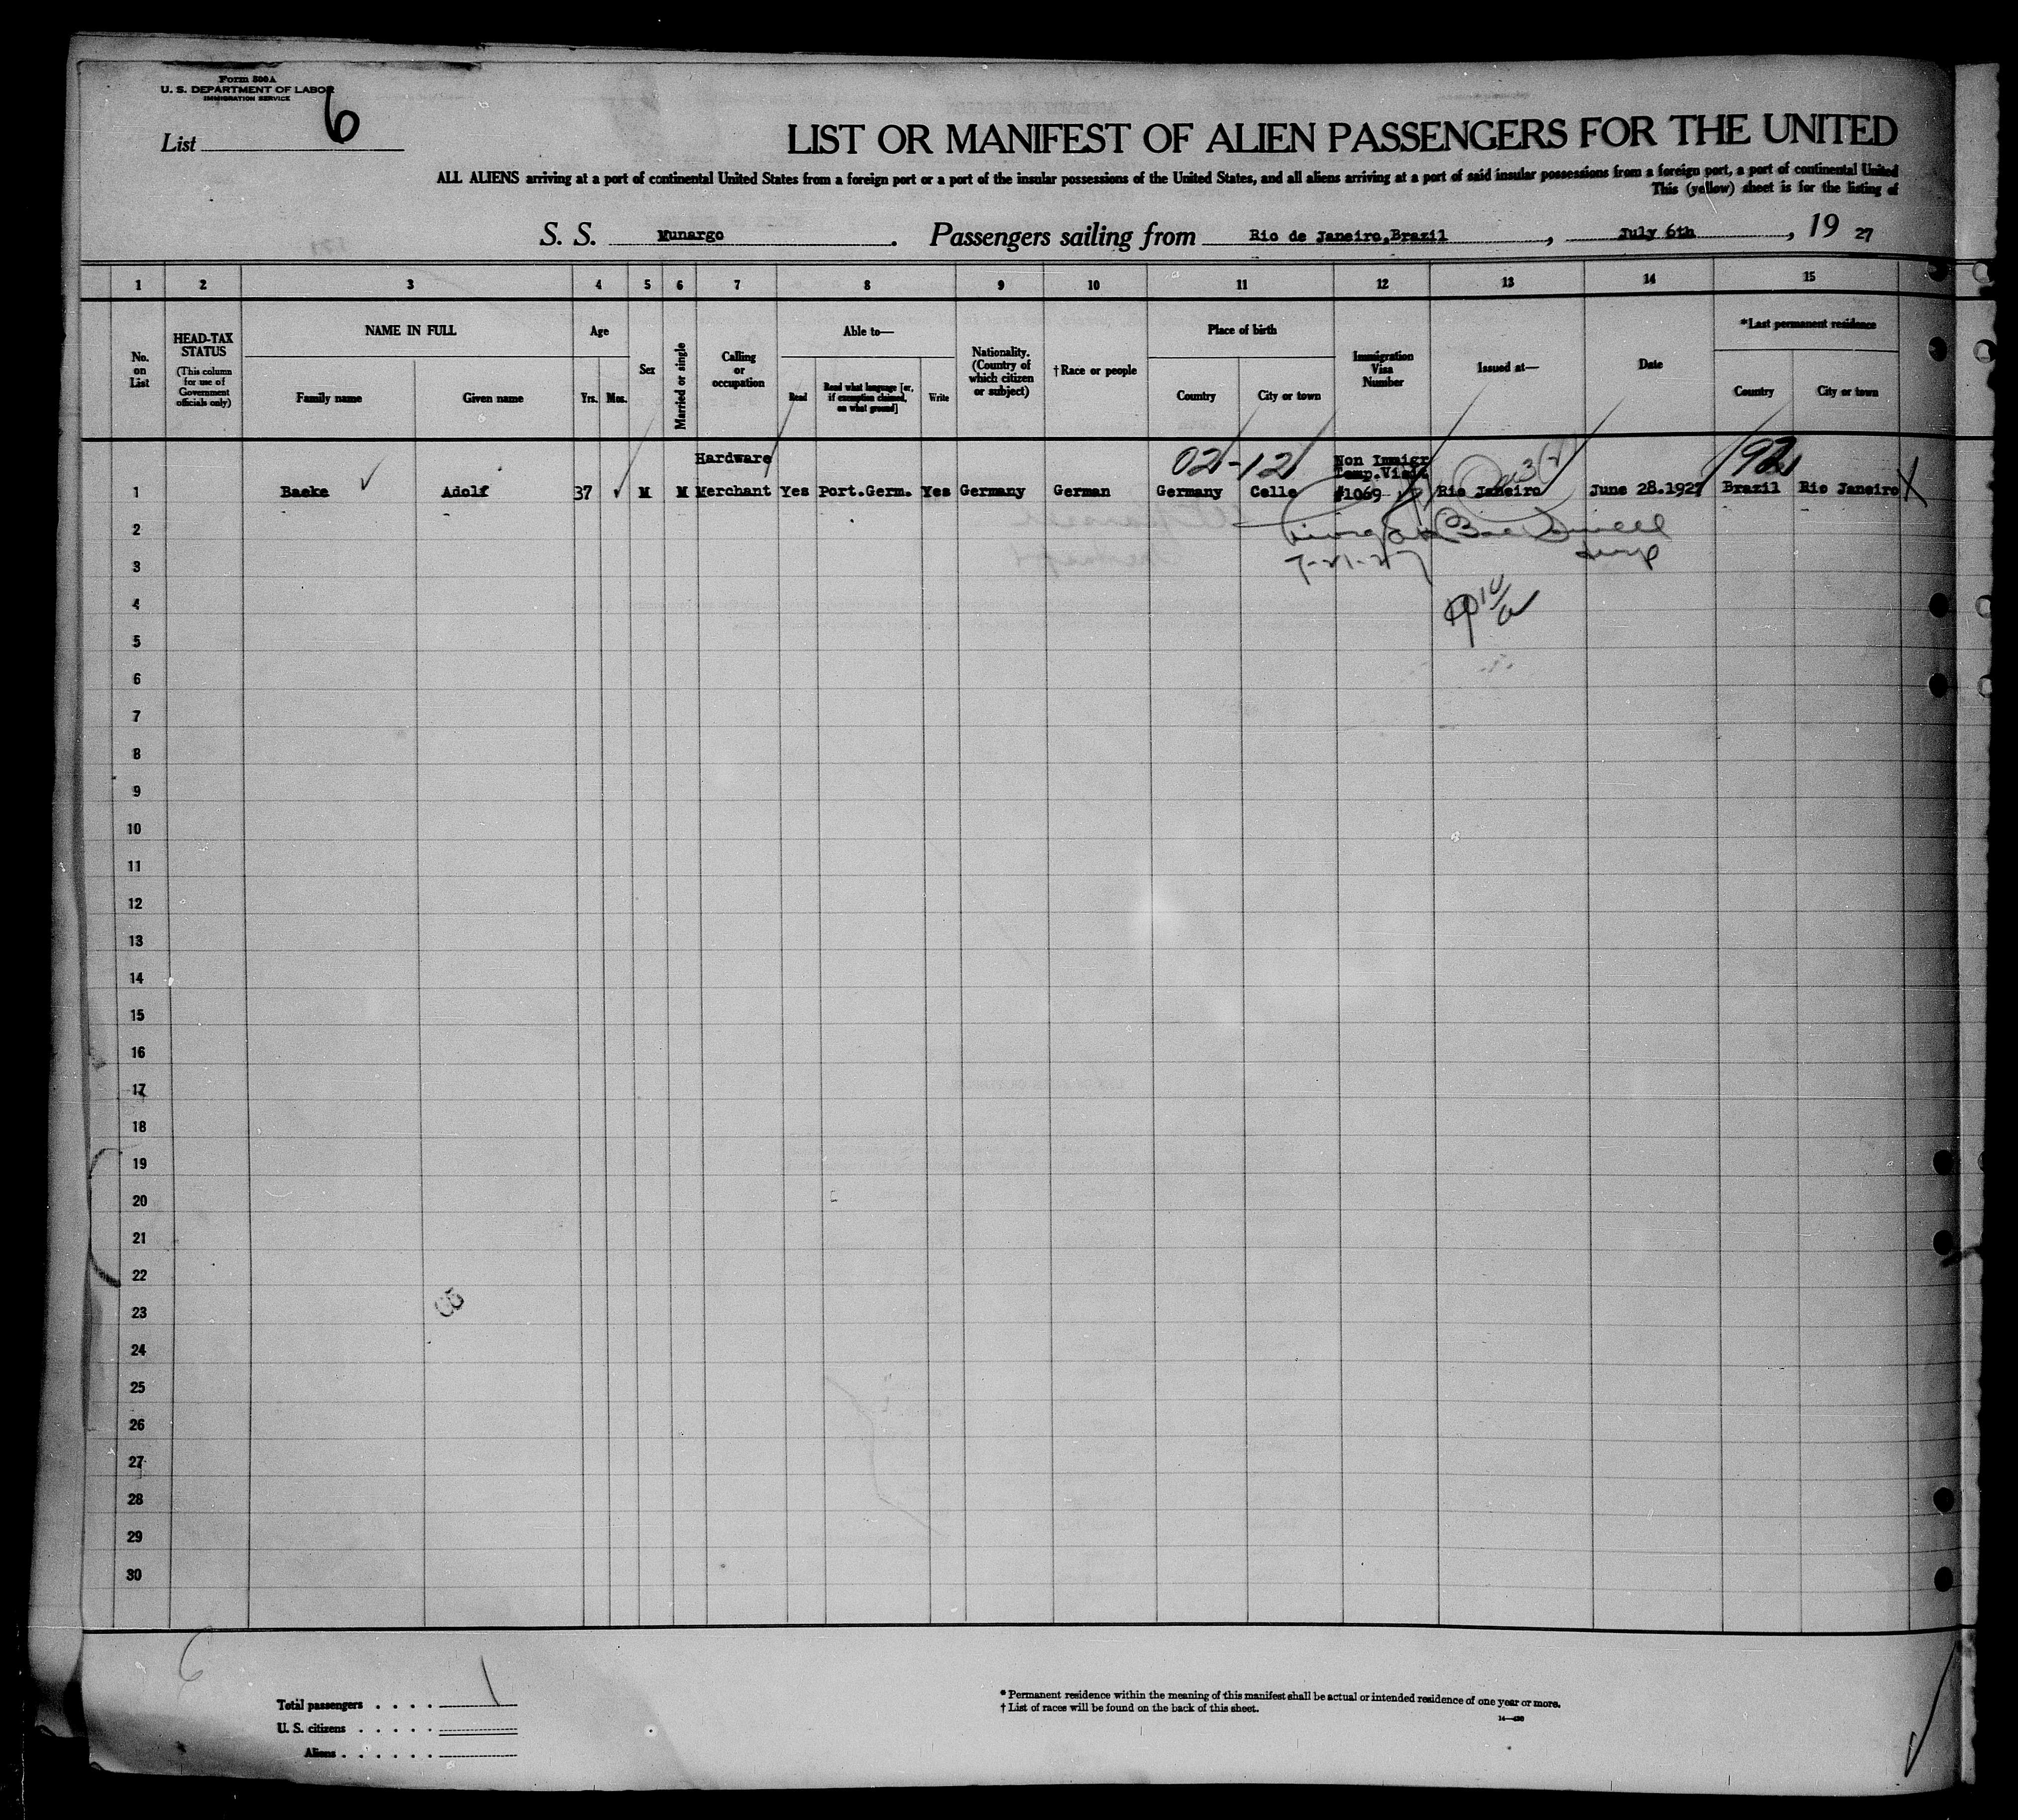 Form 500A
U. S. DEPARTMENT OF LABOR
IMMIGRATION SERVICE
List 6
LIST OR MANIFEST OF ALIEN PASSENGERS FOR THE UNITED
ALL ALIENS arriving at a port of continental United States from a foreign port or a port of the insular possessions of the United States, and all aliens arriving at a port of said insular possessions from a foreign port, a port of continental United
This (yellow) sheet is for the listing of
S. S. Munargo. Passengers sailing from Rio de Janeiro,Brazil, July 6th, 19 27
1 2 3 4 5 6 7 8 9 10 11 12 13 14 15
No. on List
HEAD-TAX STATUS (This column for use of Government officials only)
NAME IN FULL
Family name Given name
Age
Yrs. Mos.
Sex
Married or single
Calling or occupation
Able to—
Read Read what language [or, if exemption claimed, on what ground] Write
Nationality. (Country of which citizen or subject)
†Race or people
Place of birth
Country City or town
Immigration Visa Number
Issued at—
Date
*Last permanent residence
Country City or town
Hardware 02-12 Non Immigr 192
Temp.Visit
1 Baeke Adolf 37 M M Merchant Yes Port.Germ. Yes Germany German Germany Celle #1069 Rio Janeiro June 28.1927 Brazil Rio Janeiro X
2
7-21-27
3
4
5
6
7
8
9
10
11
12
13
14
15
16
17
18
19
20
21
22
23
24
25
26
27
28
29
30
6
Total passengers . . . . 1
U. S. citizens . . . . .
Aliens . . . . . .
* Permanent residence within the meaning of this manifest shall be actual or intended residence of one year or more.
† List of races will be found on the back of this sheet.